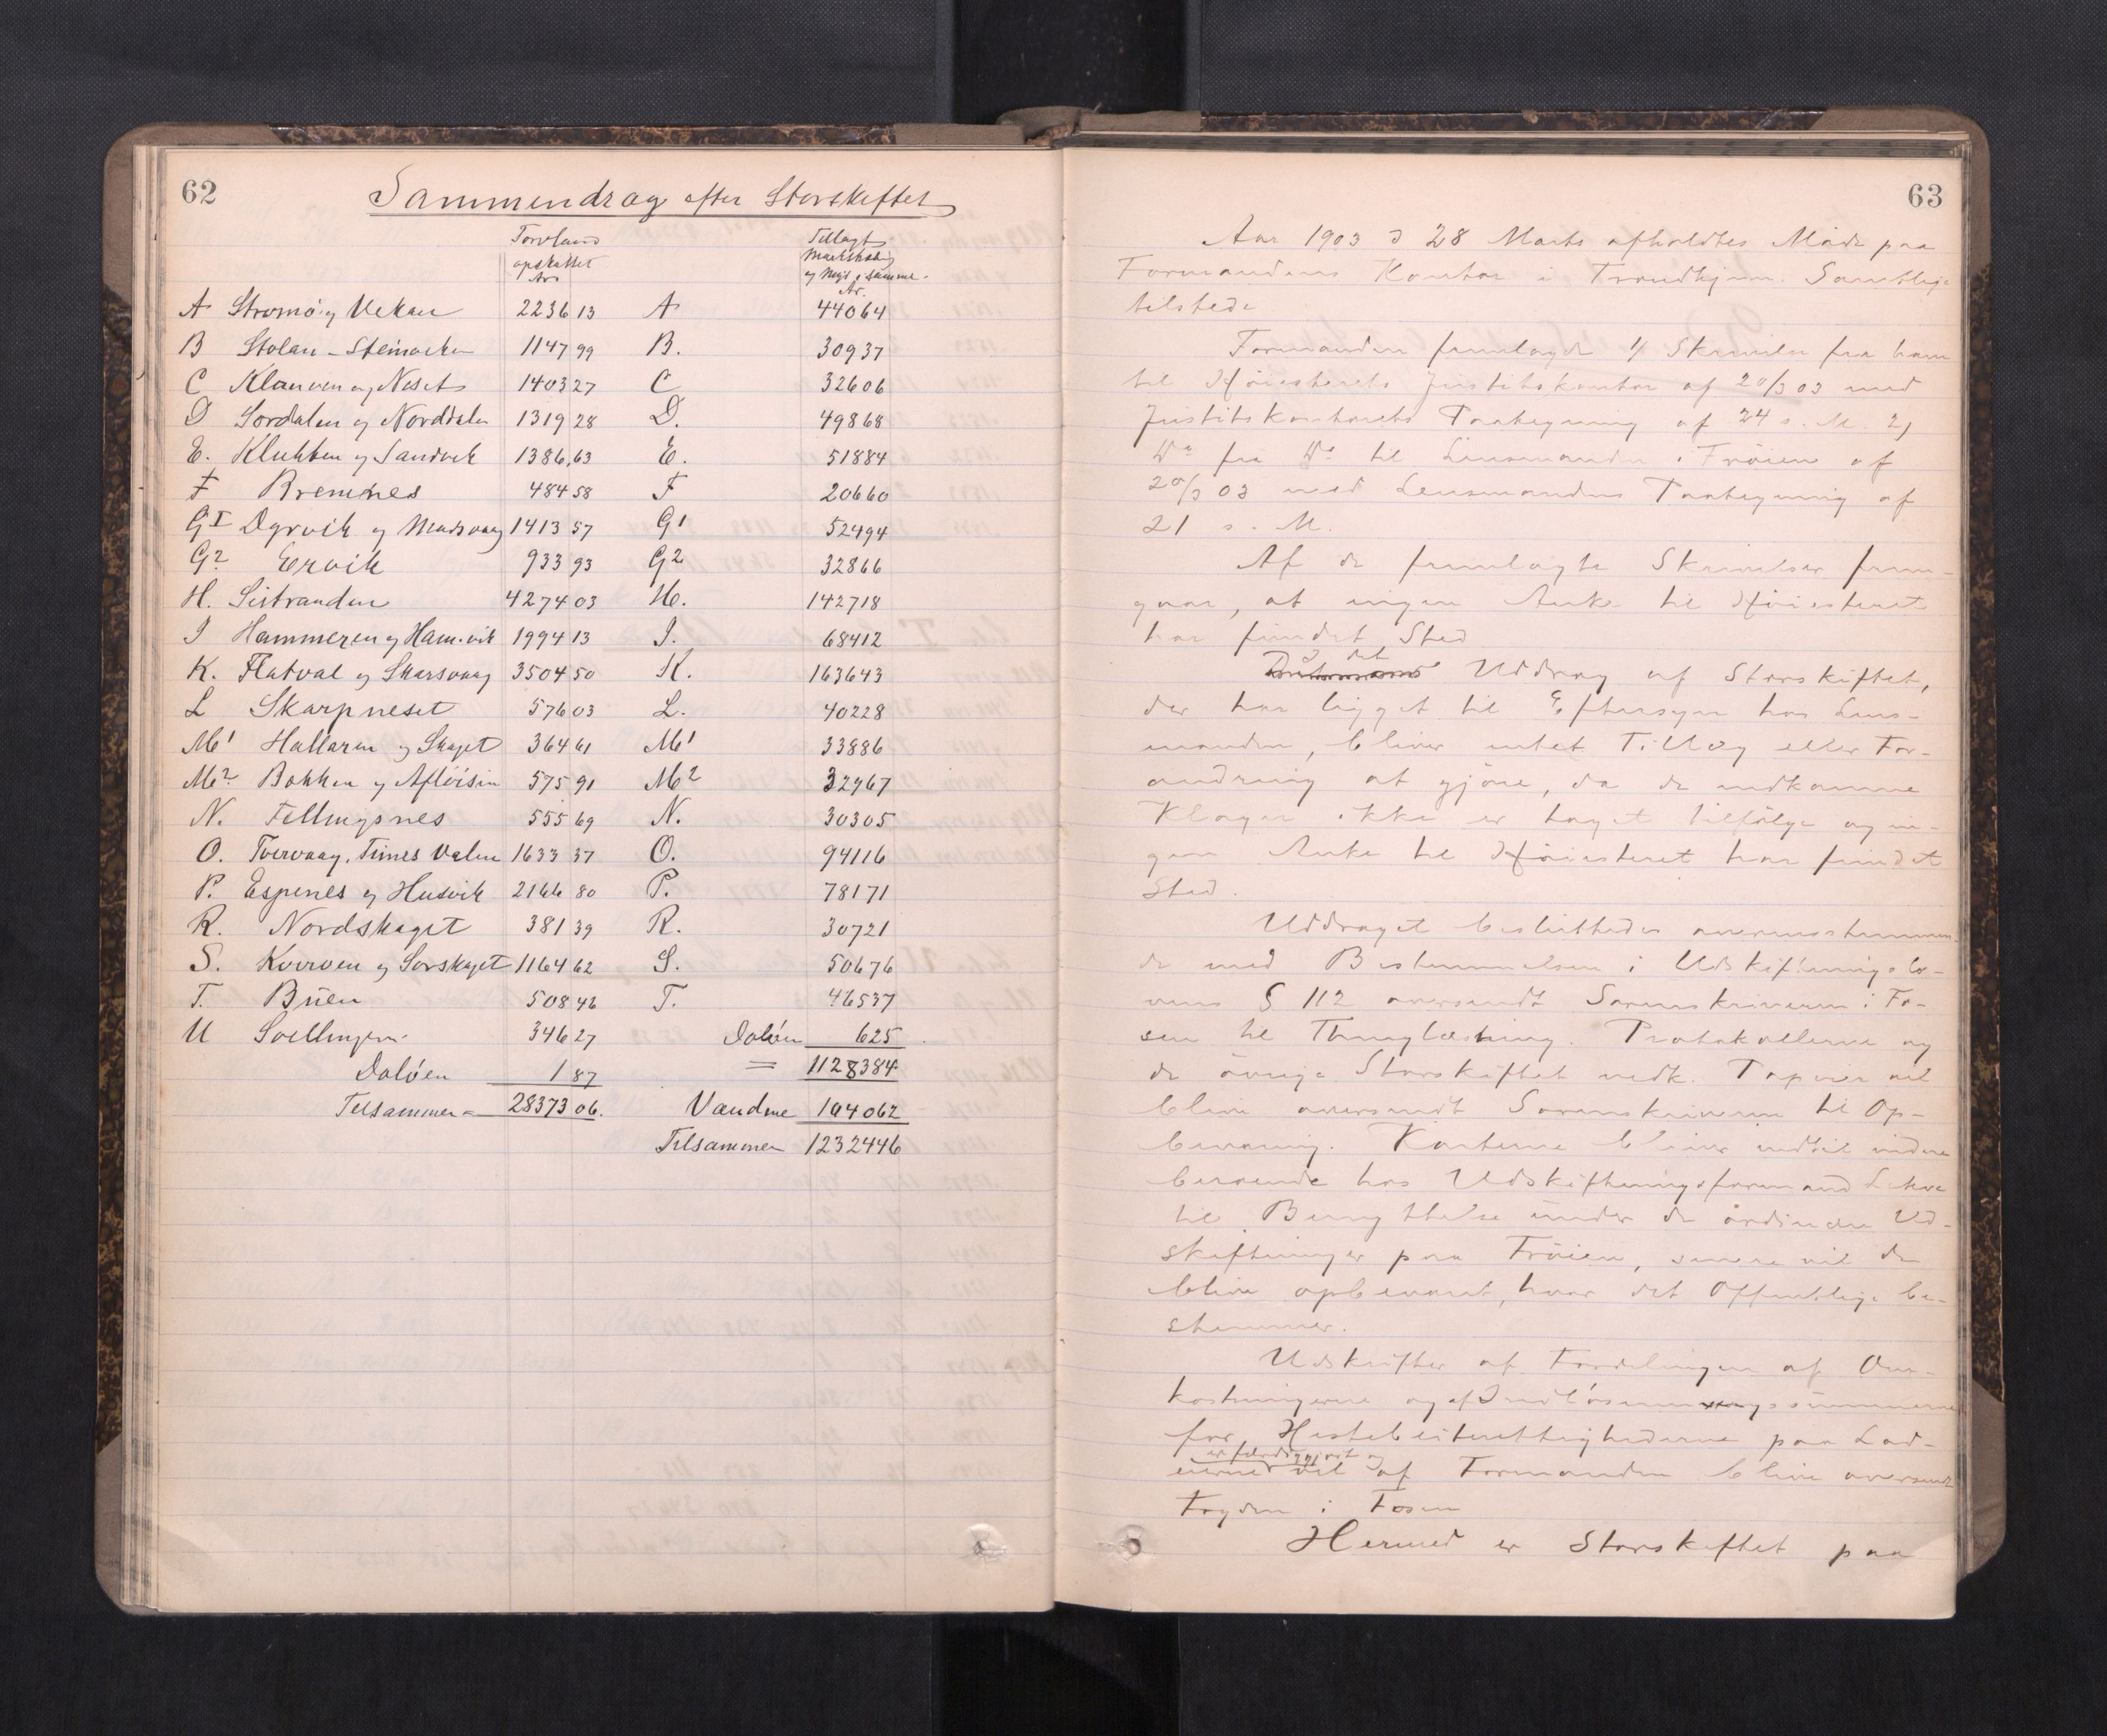 62
Sammendrag efter Storskiftet
Torvland opskattet Ar
Tillagt Markstrækning og Myr i samme. Ar.
A Strømø og Vekan 2236 13 A 44064
B Stølan - Steinvoken 1147 99 B. 30937
C Klauven og Neset 1403 27 C 32606
D Sørdalen og Norddalen 1319 28 D. 49868
E. Klubben og Sandvik 1386,63 E. 51884
F Bremnes 484 58 F 20660
G I Dyrvik og Mausvaag 1413 57 G1 52494
G2 Ervik 933 93 G2 32866
H. Sistranden 4274 03 H. 142718
I Hammeren og Ham.vik 1994 13 I. 68412
K. Flatval og Skarsvaag 3504 50 K. 163643
L Skarpneset 576 03 L. 40228
M1 Hallaren og Skaget 364 61 M1 33886
M2 Bakken og Afløisin 575 91 M2 32967
N. Fillingsnes 555 69 N. 30305
O. Tvervaag. Times Valen 1633 37 O. 94116
P. Espenes og Husvik 2166 80 P. 78171
R. Nordskaget 381 39 R. 30721
S. Kverven og Sørskaget 1164 62 S. 50676
T. Büen 508 46 T. 46537
U Svellingen 346 27 Daløen 625
Daløen 1 87 = 1128384
Tilsammen = 28373 06. Vandene 104062
Tilsammen 1232446
63
Aar 1903 d 28 Marts afholdtes Møde paa
Formandens Kontor i Trondhjem. Samtlige
tilstede
Formanden fremlagde 1/ Skrivelse fra ham
til Høiesterets Justitskontor af 20/3 03 med
Justitskontorets Paategning af 24 s. M. 2)
Do fra Do til Lensmanden i Frøien af
20/3 03 med Lensmandens Paategning af
21 s. M.
Af de fremlagte Skrivelser frem-
gaar, at ingen Anke til Høiesteret
har fundet Sted
I det Uddrag af Storskiftet,
der har ligget til Eftersyn hos Lens-
manden, bliver intet Tillæg eller For-
andring at gjøre, da de indkomne
Klager ikke er taget tilfølge og in-
gen Anke til Høiesteret har fundet
Sted.
Uddraget besluttedes overensstemmen-
de med Bestemmelsen i Udskiftningslo-
vens § 112 oversendt Sorenskriveren i Fo-
sen til Thinglæsning. Protokollerne og
de øvrige Storskiftet vedk. Papirer vil
blive oversendt Sorenskriveren til Op-
bevaring. Karterne bliver indtil videre
beroende hos Udskiftningsformand
til Benyttelse under de ordinære Ud-
skiftninger paa Frøien, senere vil de
blive opbevaret, hvor det Offentlige be-
stemmer.
Udskrifter af Fordelingen af Om-
kostningerne og af Indløsningssummerne
for Hestebeiterettighederne paa Lod-
er færdiggjort og
eierne vil af Formanden blive oversendt
Fogden i Fosen
Hermed er Storskiftet paa